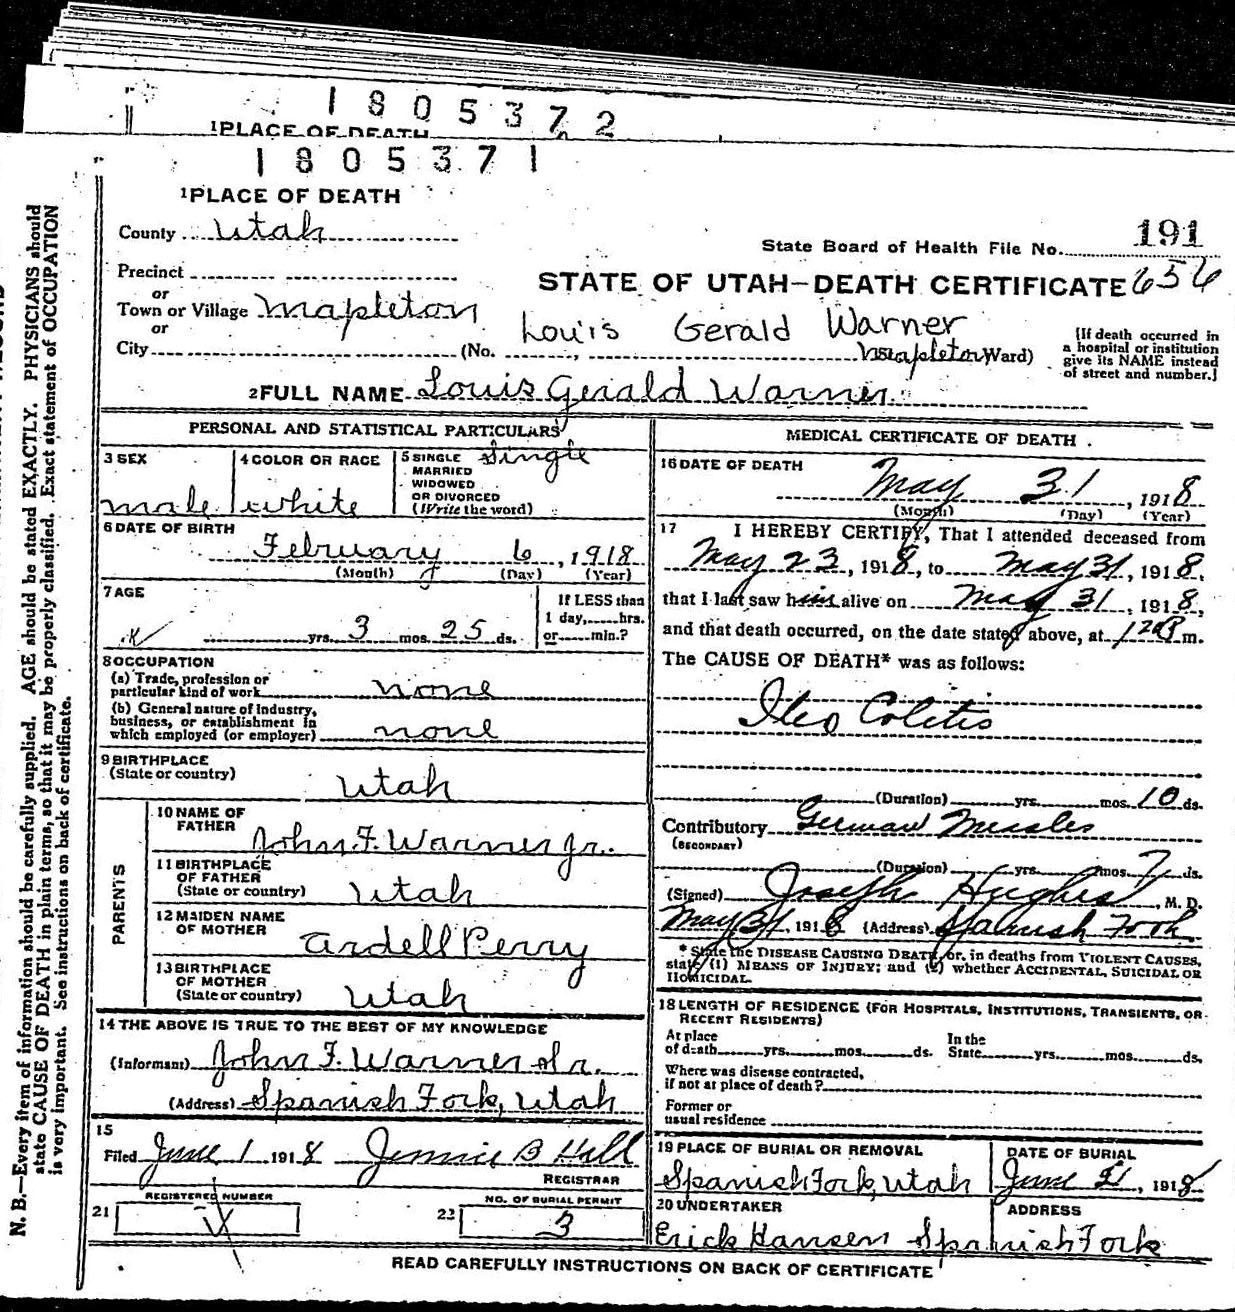 1 8 0 5 3 7 2
1 PLACE OF DEATH
1 8 0 5 3 7 1
1 PLACE OF DEATH
County Utah
191
State Board of Health File No. 656
Precinct
or
STATE OF UTAH—DEATH CERTIFICATE
Town or Village Mapleton
or
Louis Gerald Warner
City (No. , Mapleton Ward)
[If death occurred in
a hospital or institution
give its NAME instead
of street and number.]
2 FULL NAME Louis Gerald Warner
PERSONAL AND STATISTICAL PARTICULARS
3 SEX
male
4 COLOR OR RACE
white
5 SINGLE
MARRIED
WIDOWED
OR DIVORCED
(Write the word)
Single
6 DATE OF BIRTH
February 6, 1918
(Month) (Day) (Year)
7 AGE
yrs. 3 mos. 25 ds.
If LESS than
1 day, hrs.
or min.?
8 OCCUPATION
(a) Trade, profession or
particular kind of work none
(b) General nature of industry,
business, or establishment in
which employed (or employer) none
9 BIRTHPLACE
(State or country)
Utah
PARENTS
10 NAME OF
FATHER
John F. Warner Jr.
11 BIRTHPLACE
OF FATHER
(State or country) Utah
12 MAIDEN NAME
OF MOTHER
Ardell Perry
13 BIRTHPLACE
OF MOTHER
(State or country) Utah
14 THE ABOVE IS TRUE TO THE BEST OF MY KNOWLEDGE
(Informant) John F. Warner Sr.
(Address) Spanish Fork, Utah
15
Filed June 1 1918 Jennie B Hill
REGISTRAR
REGISTERED NUMBER
21
NO. OF BURIAL PERMIT
22 3
MEDICAL CERTIFICATE OF DEATH
16 DATE OF DEATH
May 31, 1918
(Month) (Day) (Year)
17 I HEREBY CERTIFY, That I attended deceased from
May 23, 1918, to May 31, 1918,
that I last saw him alive on May 31, 1918,
and that death occurred, on the date stated above, at m.
The CAUSE OF DEATH* was as follows:
Ileo Colitis
(Duration) yrs. mos. 10 ds.
Contributory German Measles
(SECONDARY)
(Duration) yrs. mos. 7 ds.
(Signed) Joseph Hughes, M. D.
May 31, 1918 (Address) Spanish Fork
* State the DISEASE CAUSING DEATH, or, in deaths from VIOLENT CAUSES,
state (1) MEANS OF INJURY; and (2) whether ACCIDENTAL, SUICIDAL OR
HOMICIDAL.
18 LENGTH OF RESIDENCE (FOR HOSPITALS, INSTITUTIONS, TRANSIENTS, OR
RECENT RESIDENTS)
At place
of death yrs. mos. ds.
In the
State yrs. mos. ds.
Where was disease contracted,
if not at place of death?
Former or
usual residence
19 PLACE OF BURIAL OR REMOVAL
Spanish Fork, Utah
DATE OF BURIAL
June 1, 1918
20 UNDERTAKER
Erick Hansen
ADDRESS
Spanish Fork
READ CAREFULLY INSTRUCTIONS ON BACK OF CERTIFICATE
N. B.—Every item of information should be carefully supplied. AGE should be stated EXACTLY. PHYSICIANS should
state CAUSE OF DEATH in plain terms, so that it may be properly classified. Exact statement of OCCUPATION
is very important. See instructions on back of certificate.